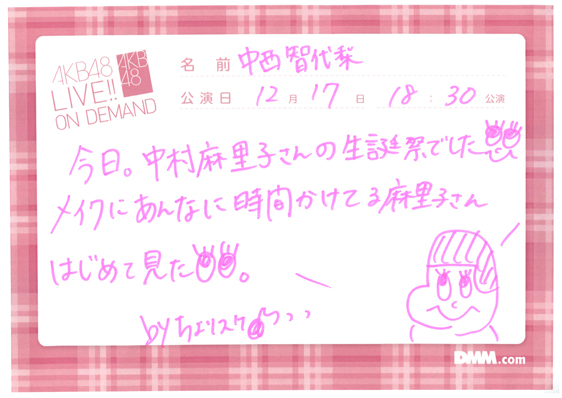 AKB48
LIVE!!
ON DEMAND
AKB
48
名前 中西智代梨
公演日 12月17日 18:30公演
今日。中村麻里子さんの生誕祭でした
メイクにあんなに時間かけてる麻里子さん
はじめて見た。
byちよりスケ♪っっっ
DMM.com